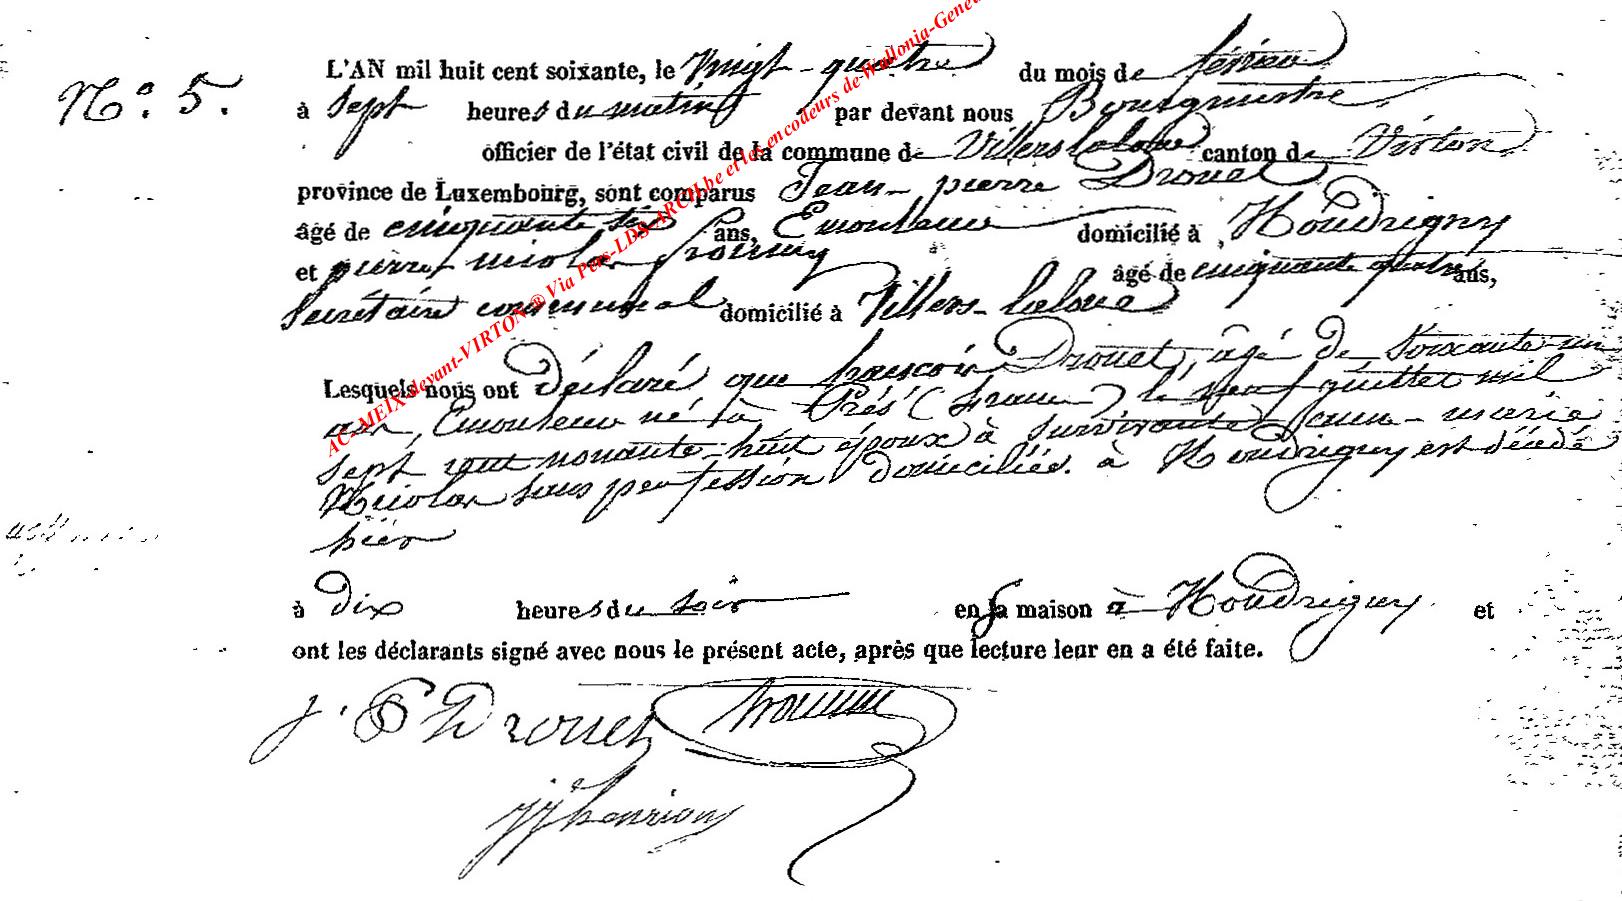 N.° 5.
L'AN mil huit cent soixante, le vingt-quatre du mois de février
à sept heures du matin par devant nous Bourgmestre
officier de l'état civil de la commune de Villerslaloue canton de Virton
province de Luxembourg, sont comparus Jean-pierre Drouet
âgé de cinquante six ans, Emouleur domicilié à Houdrigny
et pierre nicolas âgé de cinquante quatre ans,
Secrétaire communal domicilié à Villers-laloue
Lesquels nous ont déclaré que françois Drouet, âgé de soixante-un
ans, Emouleur né à Prés (france) le neuf juillet mil
sept cent nonante-huit époux à survivante Jeanne-marie
Nicolas sans profession domiciliée à Houdrigny est décédé
hier
à dix heures du soir en sa maison à Houdrigny et
ont les déclarants signé avec nous le présent acte, après que lecture leur en a été faite.
j. P Drouet
jj henrion
AC-MEIX-devant-VIRTON® Via Pers-LDS-ARCH.be et les encodeurs de Wallonia-Gene